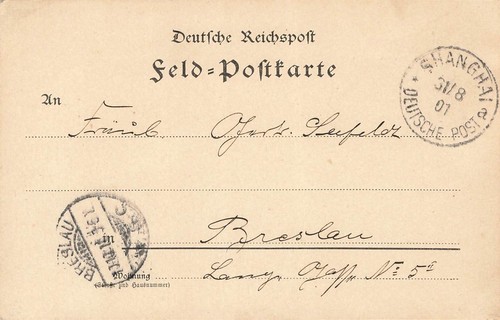 Deutsche Reichspost
Feld-Postkarte
SHANGHAI a
31/8
01
* DEUTSCHE POST
An
Seefeldt
in Breslau
BRESLAU
Wohnung
Lange Gasse No 5 II
(Straße und Hausnummer)